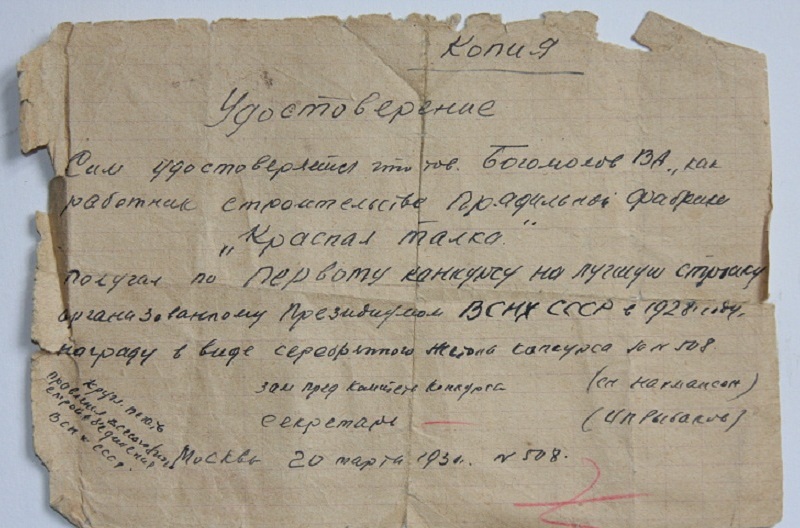 Копия
Удостоверение
Сим удостоверяется что тов. Богомолов ВА„ как
работник строительстве Прядильной фабрики
„Красная Талка"
получал по Первому канкурсу на лучшую стройку
организованному Президиумом ВСНХ СССР в 1928 году,
награду в виде серебрянного жетона конкурса за № 508
зам пред комитета конкурса (сн Нахмансон)
секретарь — (ип Рыбаков)
Кругл. печать
правления
ВСНХ СССР.
Москва 20 марта 193 г. № 508.